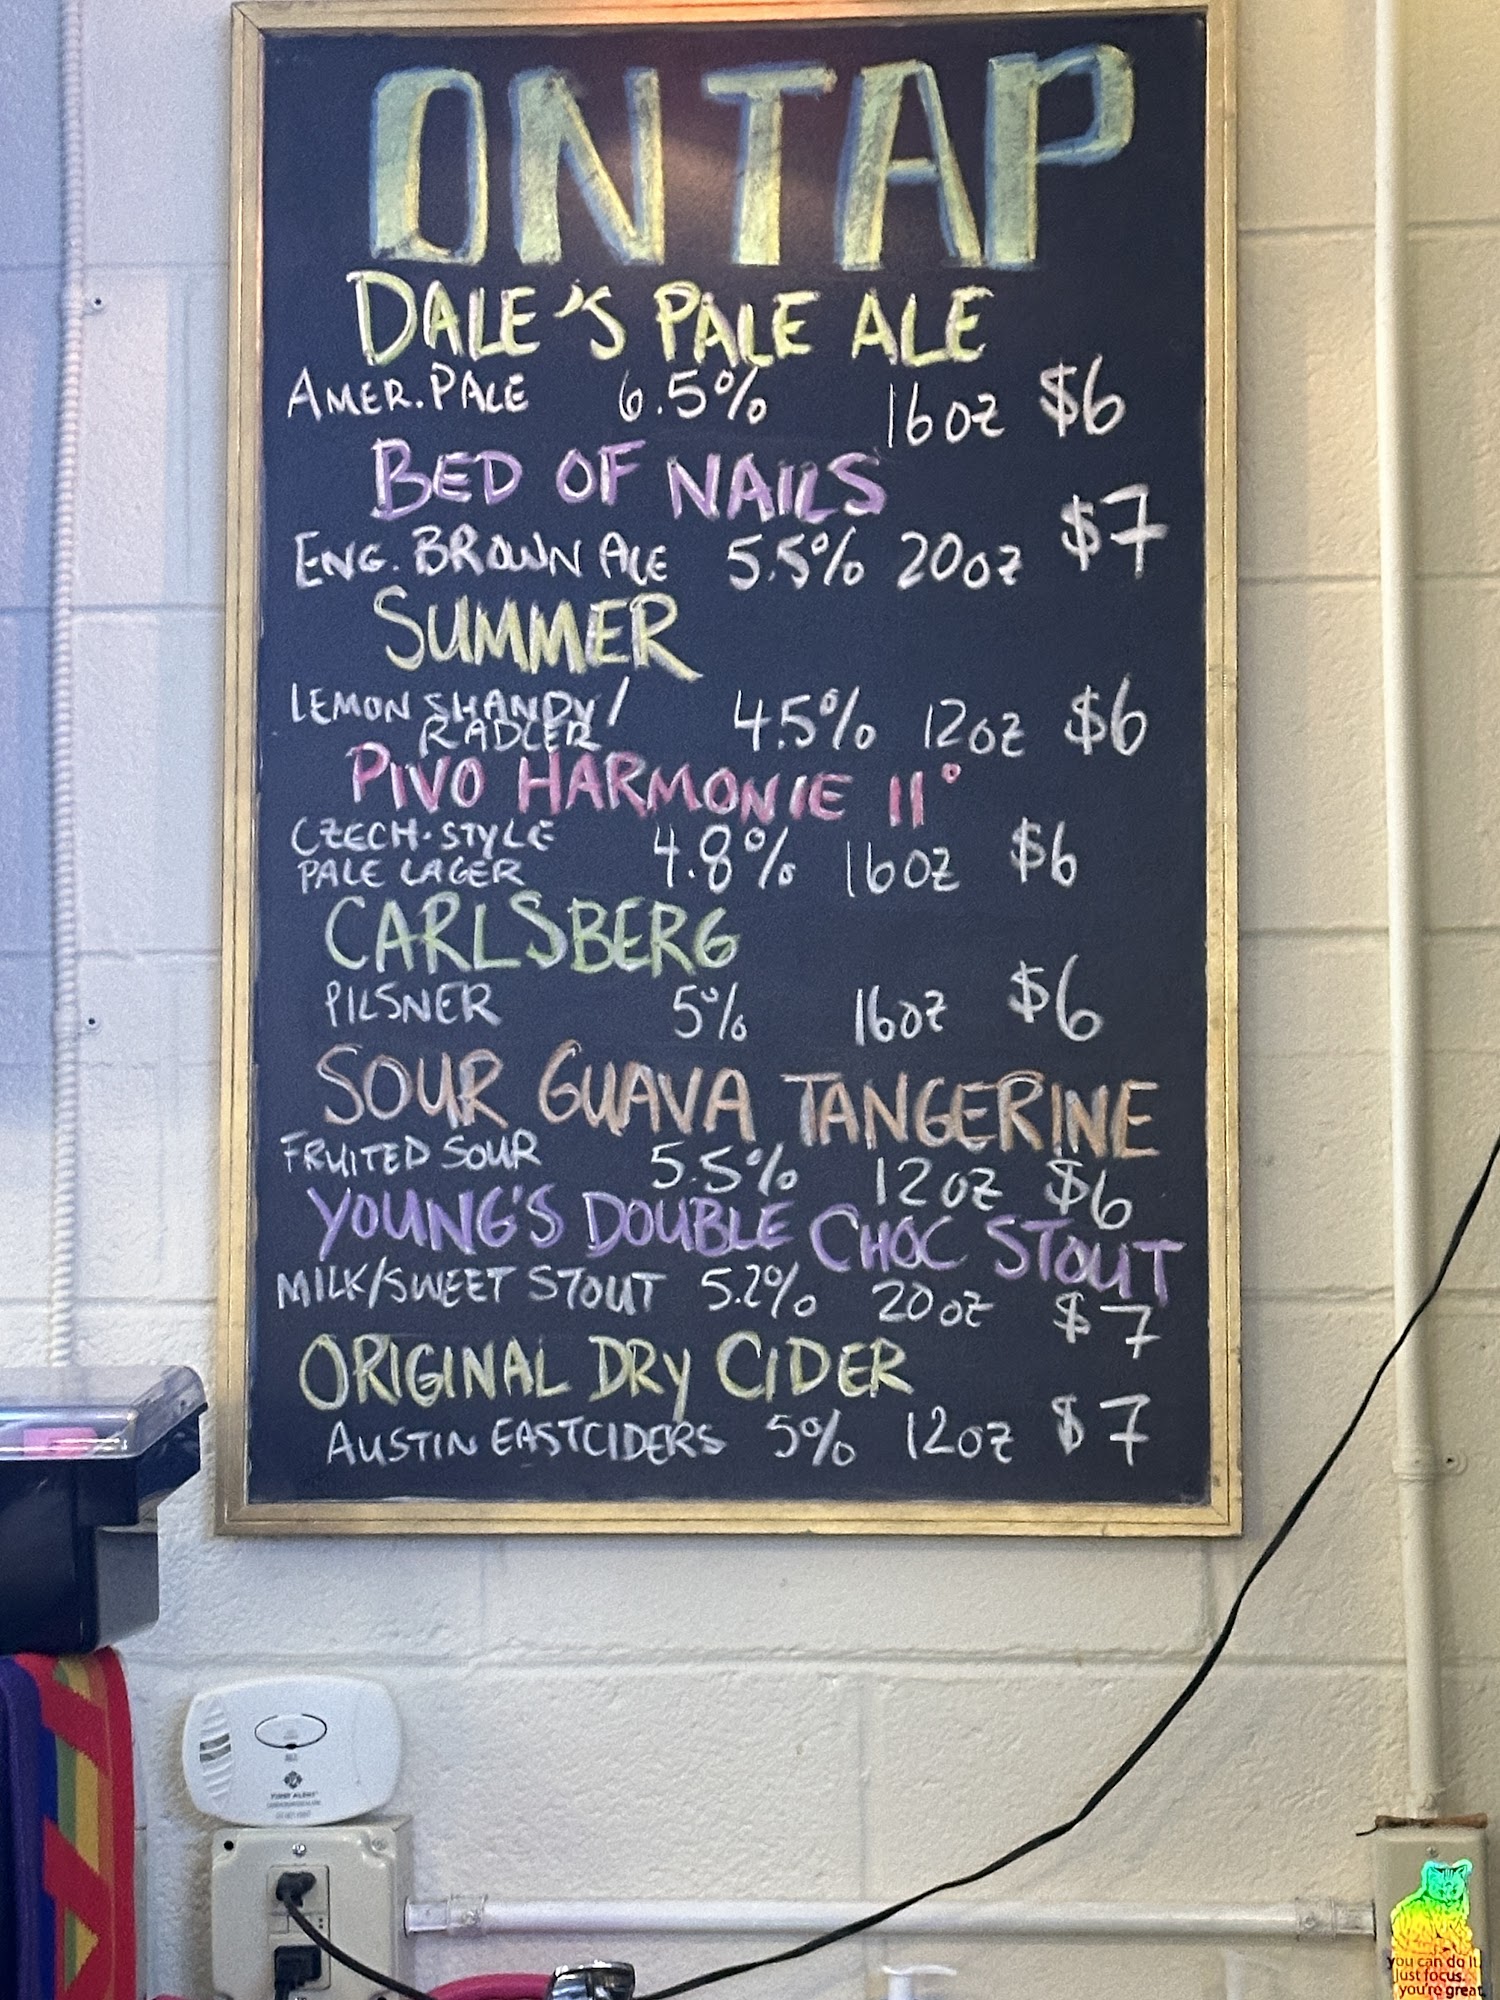 ON TAP
DALE'S PALE ALE
AMER. PALE 6.5% 16oz $6
BED OF NAILS
ENG. BROWN ALE 5.5% 20oz $7
SUMMER
LEMON SHANDY/ 4.5% 12oz $6
RADLER
PIVO HARMONIE 11°
CZECH-STYLE 4.8% 16oz $6
PALE LAGER
CARLSBERG
PILSNER 5% 16oz $6
SOUR GUAVA TANGERINE
FRUITED SOUR 5.5% 12oz $6
YOUNG'S DOUBLE CHOC STOUT
MILK/SWEET STOUT 5.2% 20oz $7
ORIGINAL DRY CIDER
AUSTIN EASTCIDERS 5% 12oz $7
FIRST ALERT
you can do it.
just focus.
you're great.